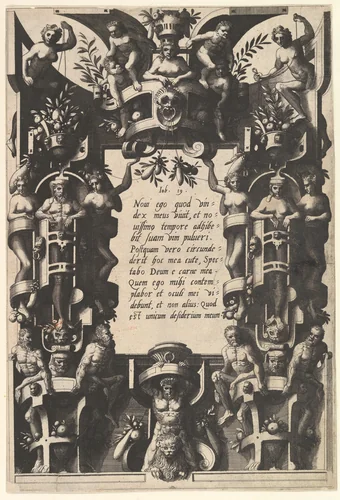 Iob. 19.
Novi ego quod vin=
dex meus vivit, et no=
uissimo tempore adhibe=
bit suam vim pulveri.
Postquam vero circumde=
derit hoc mea cute, Spec=
tabo Deum e carne mea.
Quem ego mihi contem=
plabor et oculi mei vi=
debunt, et non alius: Quod
est unicum desiderium meum